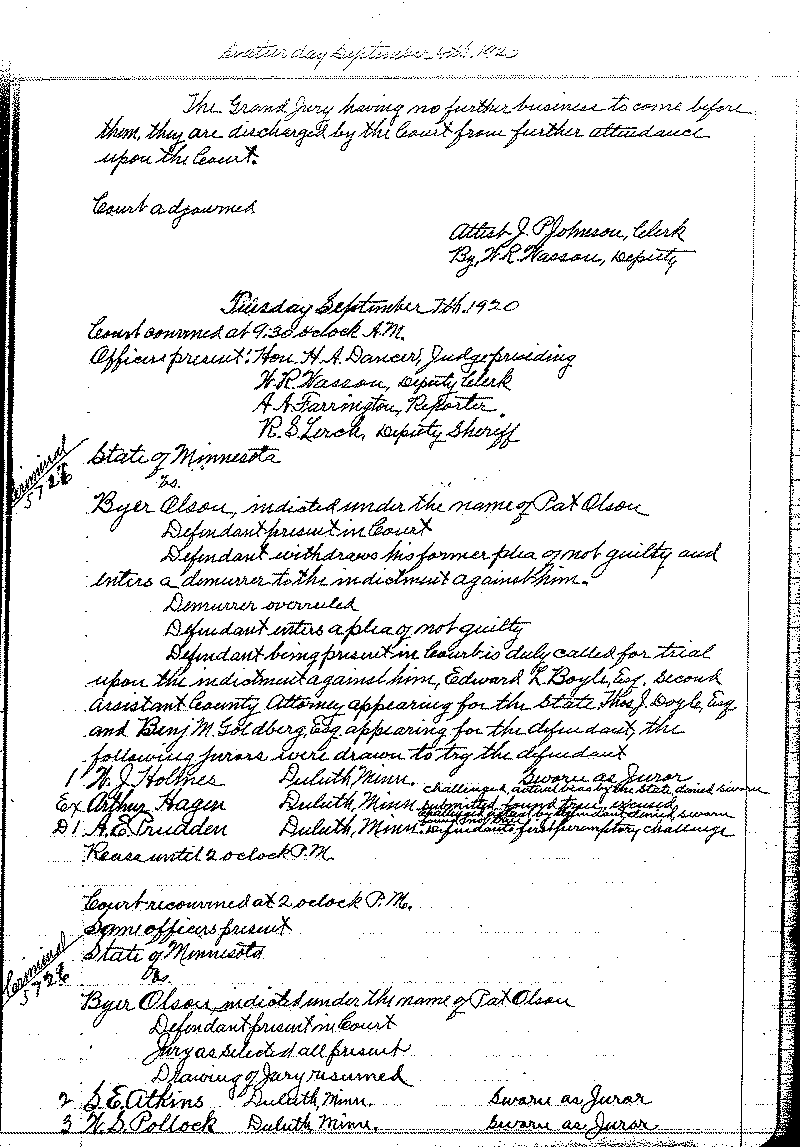 Saturday September 4th. 1920
The Grand Jury having no further business to come before
them, they are discharged by the Court from further attendance
upon the Court.
Court adjourned
Attest J. P. Johnson, Clerk
By, W. R. Wasson, Deputy
Tuesday September 7th. 1920
Court convened at 9:30 oclock A.M.
Officers present: Hon. H. A. Dancer, Judge presiding
W. R. Wasson, Deputy Clerk
A A Farrington, Reporter.
R. S. Lerch, Deputy Sheriff
Criminal
State of Minnesota
vs.
Byer Olson, indicted under the name of Pat Olson
Defendant present in Court
Defendant withdraws his former plea of not guilty and
enters a demurrer to the indictment against him.
Demurrer overruled
Defendant enters a plea of not guilty
Defendant being present in Court is duly called for trial
upon the indictment against him, Edward L Boyle, Esq. second
assistant County Attorney appearing for the State, Thos J. Doyle, Esq
and Benj M. Goldberg, Esq appearing for the defendant, the
following jurors were drawn to try the defendant
1 W. J. Holmes Duluth, Minn. Sworn as Juror
Ex Arthur Hagen Duluth, Minn challenged, actual bias by the State denied sworn
submitted found true, excused
D1 A. E. Prudden Duluth, Minn. by defendant denied sworn
Defendants first peremptory challenge
Recess until 2 oclock P.M.
Court reconvened at 2 oclock P.M.
Same officers present
Criminal
State of Minnesota
vs.
Byer Olson, indicted under the name of Pat Olson
Defendant present in Court
Jury as selected all present
Drawing of Jury resumed
2 S. E. Atkins Duluth Minn. Sworn as Juror
3 W. S. Pollock Duluth Minn. Sworn as Juror